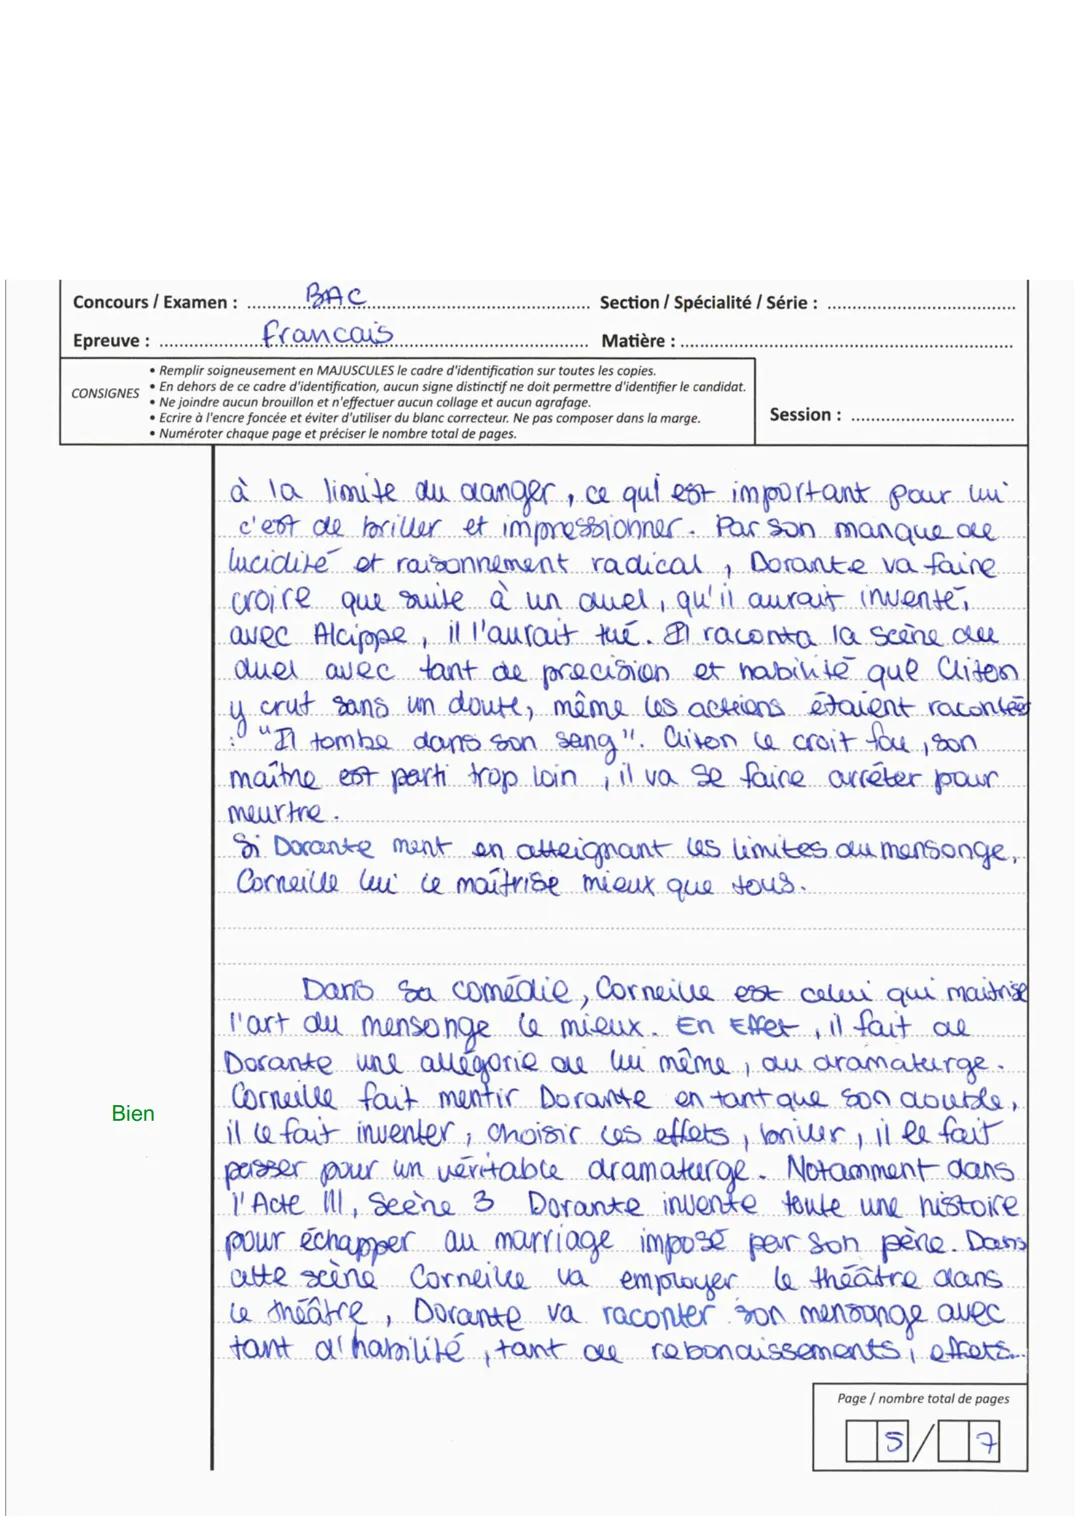 Concours / Examen : BAC Section / Spécialité / Série :
Epreuve : francais Matière :
CONSIGNES
• Remplir soigneusement en MAJUSCULES le cadre d'identification sur toutes les copies.
• En dehors de ce cadre d'identification, aucun signe distinctif ne doit permettre d'identifier le candidat.
• Ne joindre aucun brouillon et n'effectuer aucun collage et aucun agrafage.
• Ecrire à l'encre foncée et éviter d'utiliser du blanc correcteur. Ne pas composer dans la marge.
• Numéroter chaque page et préciser le nombre total de pages.
Session :
à la limite du danger, ce qui est important pour lui
c'est de briller et impressionner. Par son manque de
lucidité et raisonnement radical, Dorante va faire
croire que suite à un duel, qu'il aurait inventé,
avec Alcippe, il l'aurait tué. Il raconta la scène du
duel avec tant de precision et habilité que Cliton
y crut sans un doute, même les actions étaient racontées
: "Il tombe dans son sang". Cliton le croit fou, son
maître est parti trop loin, il va se faire arrêter pour
meurtre.
Si Dorante ment en atteignant les limites du mensonge,
Corneille lui le maîtrise mieux que tous.
Dans sa comédie, Corneille est celui qui maitrise
l'art du mensonge le mieux. En Effet, il fait de
Dorante une allégorie de lui même, du dramaturge.
Corneille fait mentir Dorante en tant que son double,
il le fait inventer, choisir ces effets, briller, il le fait
passer pour un véritable dramaturge. Notamment dans
l'Acte III, Scène 3 Dorante invente toute une histoire
pour échapper au marriage imposé par son père. Dans
cette scène Corneille va employer le théâtre dans
le théâtre, Dorante va raconter son mensonge avec
tant d'habilité, tant de rebondissements, effets...
Bien
Page / nombre total de pages
5 / 7